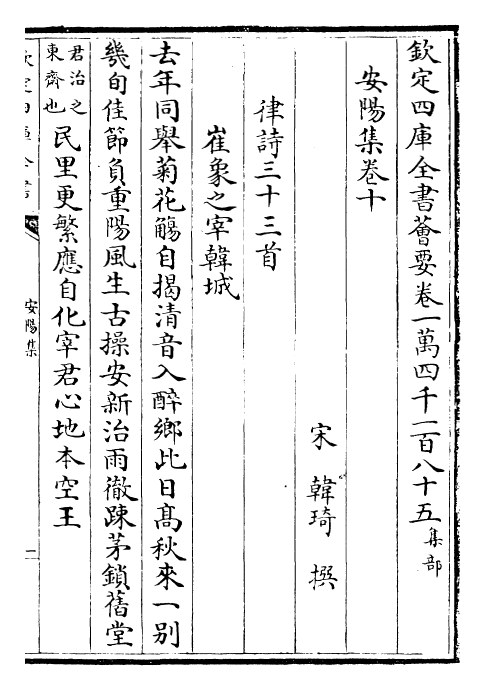 欽定四庫全書薈要卷一萬四千一百八十五 集部
安陽集卷十
宋 韓琦 撰
律詩三十三首
崔象之宰韓城
去年同舉菊花觴自揭清音入醉鄉比日髙秋來一别
幾旬佳節負重陽風生古操安新治雨徹踈茅鎖舊堂
君治之
東齋也
民里更繁應自化宰君心地本空王
安陽集
一